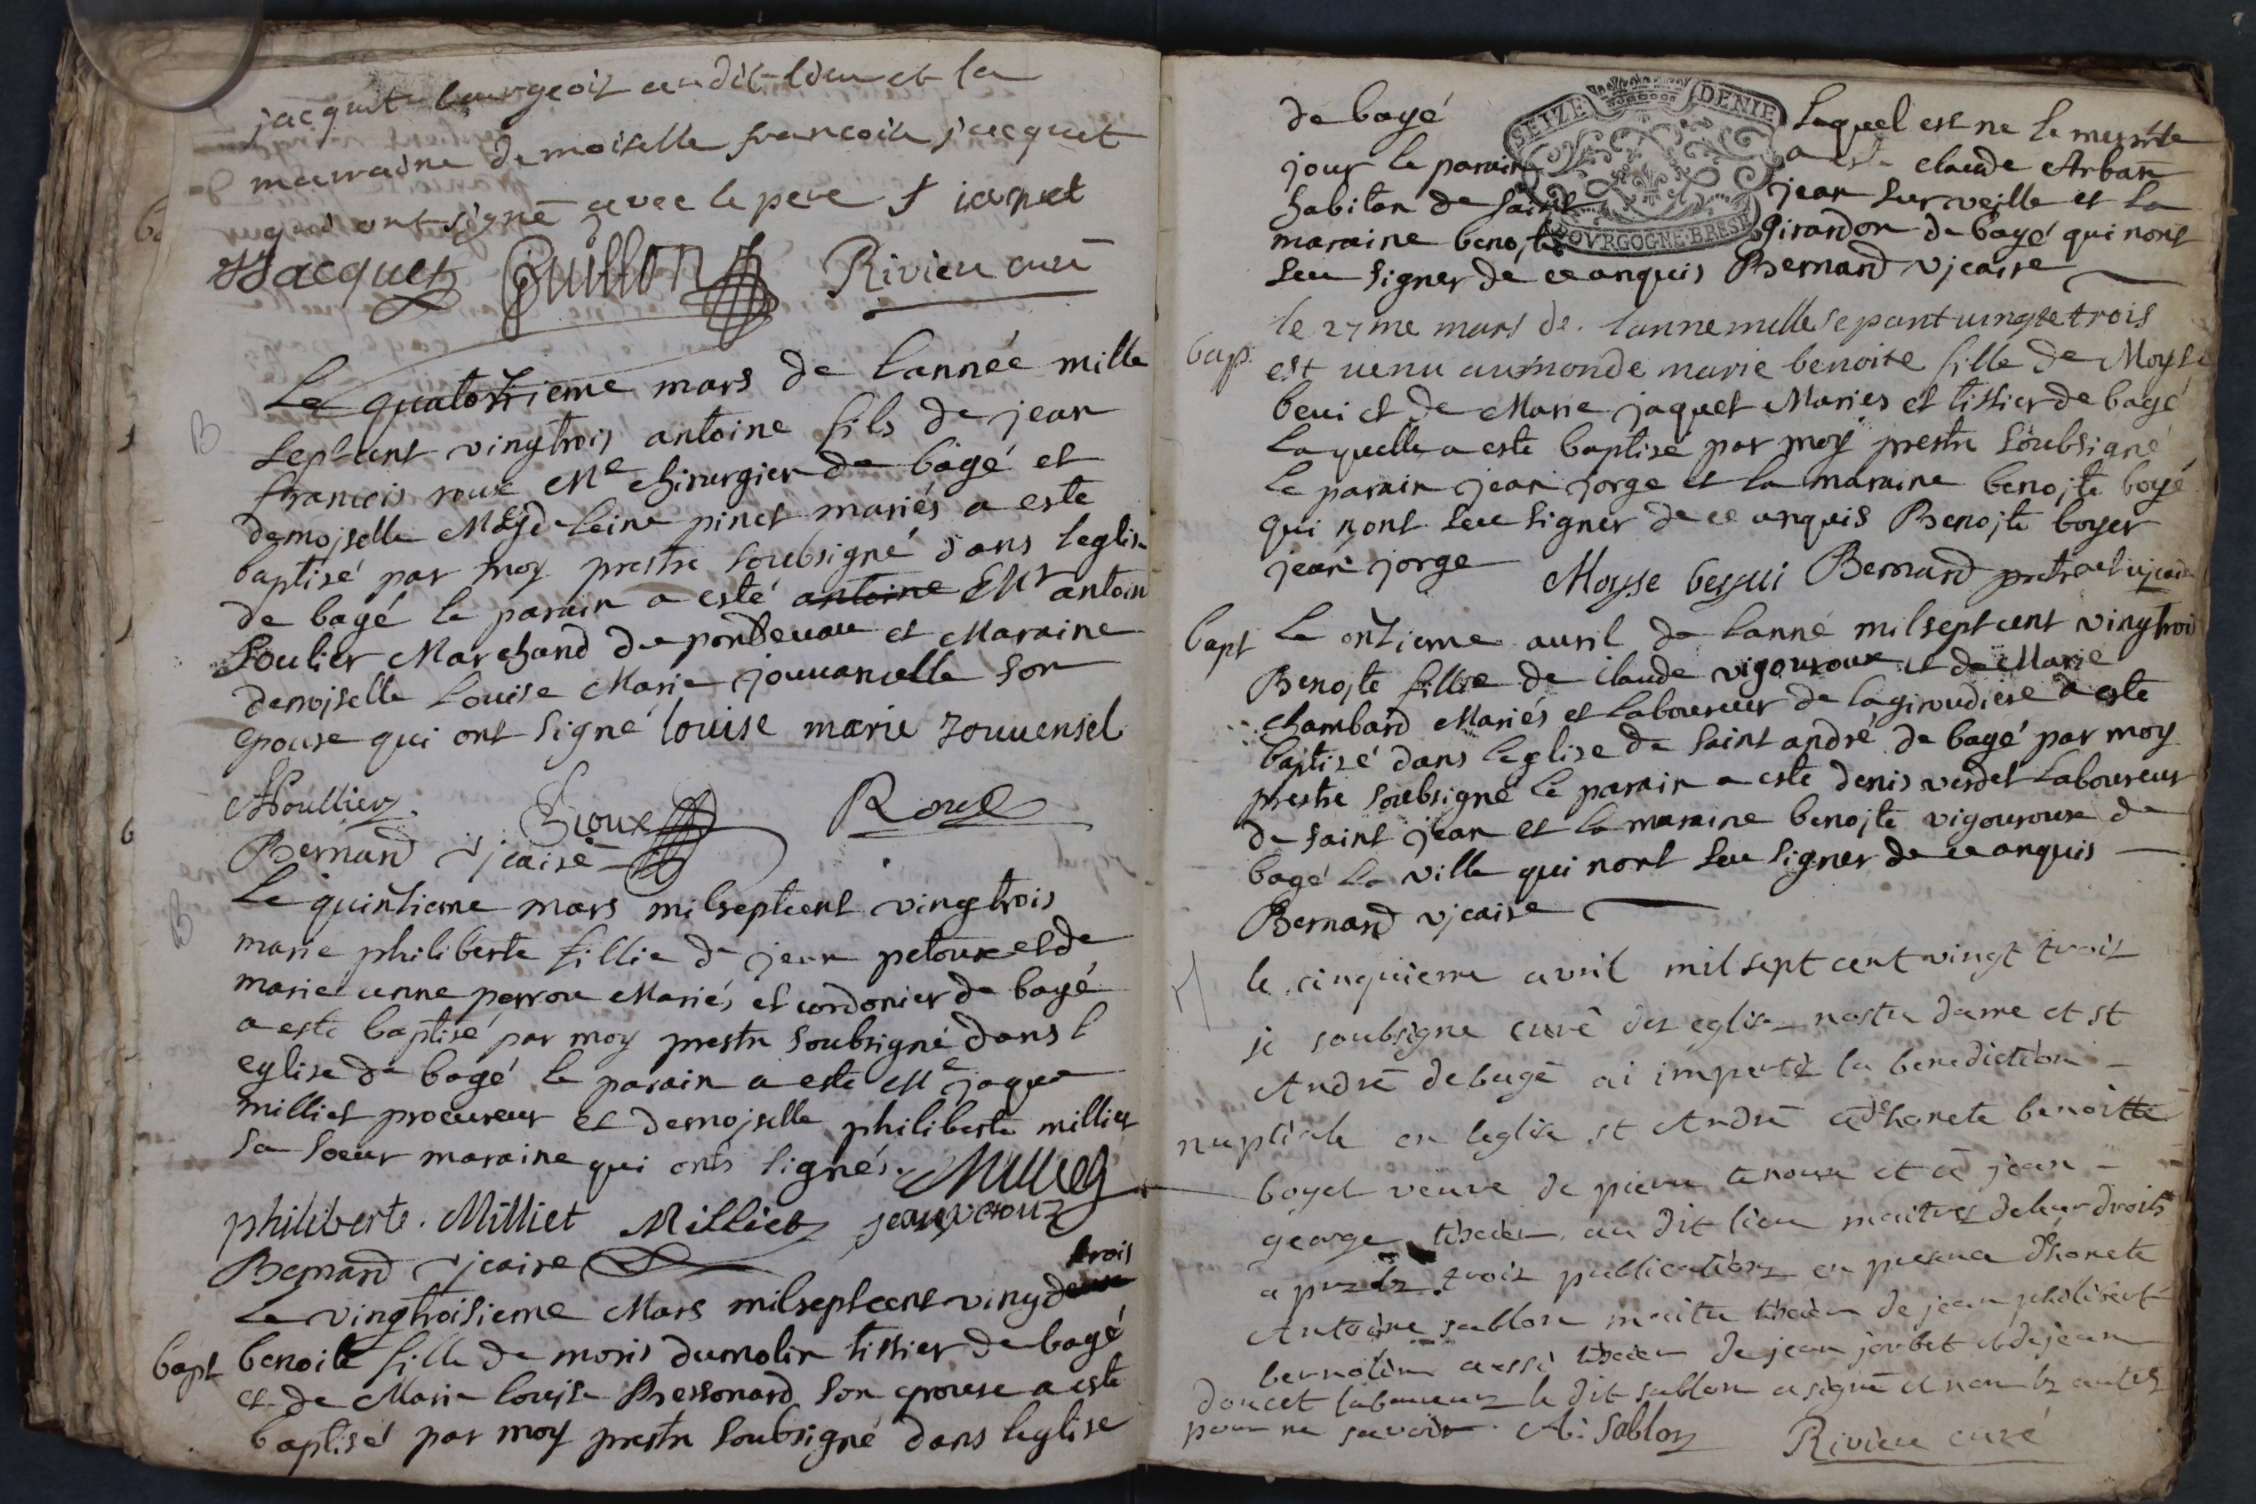 jacquet bourgeois audit lieu et la
marraine demoiselle francoise jacquet
qui ont signé avec le pere f iaquet
Jacquet Guillon Rivieu curé
B
Le quatorzieme mars de lannée mille
septcent vingtrois antoine fils de jean
francois roux Me chirurgien de bâgé et
demojselle Magdeleine pinet mariés a este
baptisé par moy prestre soubsigné dans leglise
de bagé le parain a esté antoine Mr antoin
Soulier Marchand de pondevaux et Maraine
demojselle Louise Marie jouuancelle son
epouse qui ont signé louise marie Jouuensel
ASoullier Rioux Roux
Bernard vjcaire
B
Le quinzieme mars milseptcent vingtrois
marie philiberte fillie de jean petoux et de
marie anne perrou Mariés et cordonier de bagé
a este baptisé par moy prestre soubsigné dans l
eglise de bagé le parain a este Me jaque
milliet procureur et demojselle philiberte milliet
sa soeur maraine qui onts signés. Milliet
philiberte. Milliet Milliet jean petouz
Bernard vjcaire
Le vingtroisieme Mars milseptcent vingdeux trois
bapt benoite fille de moris dumolin tissier de bagé
et de Marie loujse Bressonard son epouse a este
baptisé par moy prestre soubsigné dans leglise
SEIZE DENIE
BOVRGOGNE·BRESE
de bagé Laquel est ne le mesme
jour le parain a este claude Arban
habitan de saint jean surveille et la
maraine benojte Girandon de bagé qui nont
seu signer de ce anquis Bernard vjcaire
bap. le 27me mars de lanne mille sepant uingte trois
est uenu aumonde marie benoite fille de Moyse
beui et de Marie jaquet Maries et tissier de bagé
Laquelle a este baptisé par moy prestre soubsigné
Le parain jean jorge et la maraine benojte boyé
qui nont seu signer de ce anquis Benojte boyer
jean jorge Moysse beyui Bernard pretre et vjcaire
bapt Le onzieme auril de lanné milseptcent vingtrois
Benojte fillie de claude vigouroux et de Marie
chambard Mariés et Laboureur de lagiroudiere a este
baptisé dans leglise de saint andré de bagé par moy
prestre soubsigné le parain a este denis verdet Laboureur
de saint jean et la maraine benojte vigouroux de
bagé La ville qui nont seu signer de ce anquis
Bernard vjcaire
le cinquieme avril mil sept cent vingt trois
je soubsigne curé des eglise nostre dame et st
André debagé ai imperti la benediction
nuptiale en leglise st André a honete benoitte
boyet veuve de pierre tenoux et a jean
george tixier au dit lieu maitres de leur droits
apres les trois publications en presence d'honete
Antoine sablon maitre tixier de jean philibert
bernolin aussi tixier de jean joubet et de jean
doucet laboureur le dit sablon a signé et non les autres
pour ne savoir. A: Sablon Rivieu curé